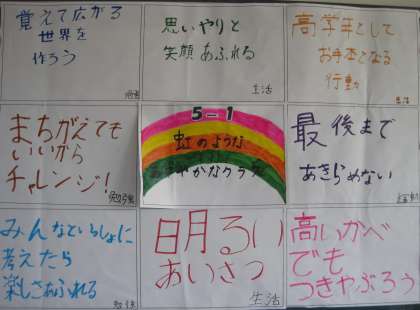 覚えて広がる
世界を
作ろう
勉強
思いやりと
笑顔あふれる
生活
高学年として
お手本となる
行動
生活
まちがえても
いいから
チャレンジ!
勉強
5-1
虹のような
やかなクラス
最後まで
あきらめない
みんなといっしょに
考えたら
楽しさあふれる
勉強
明るい
あいさつ
生活
高いかべ
でも
つきやぶろう